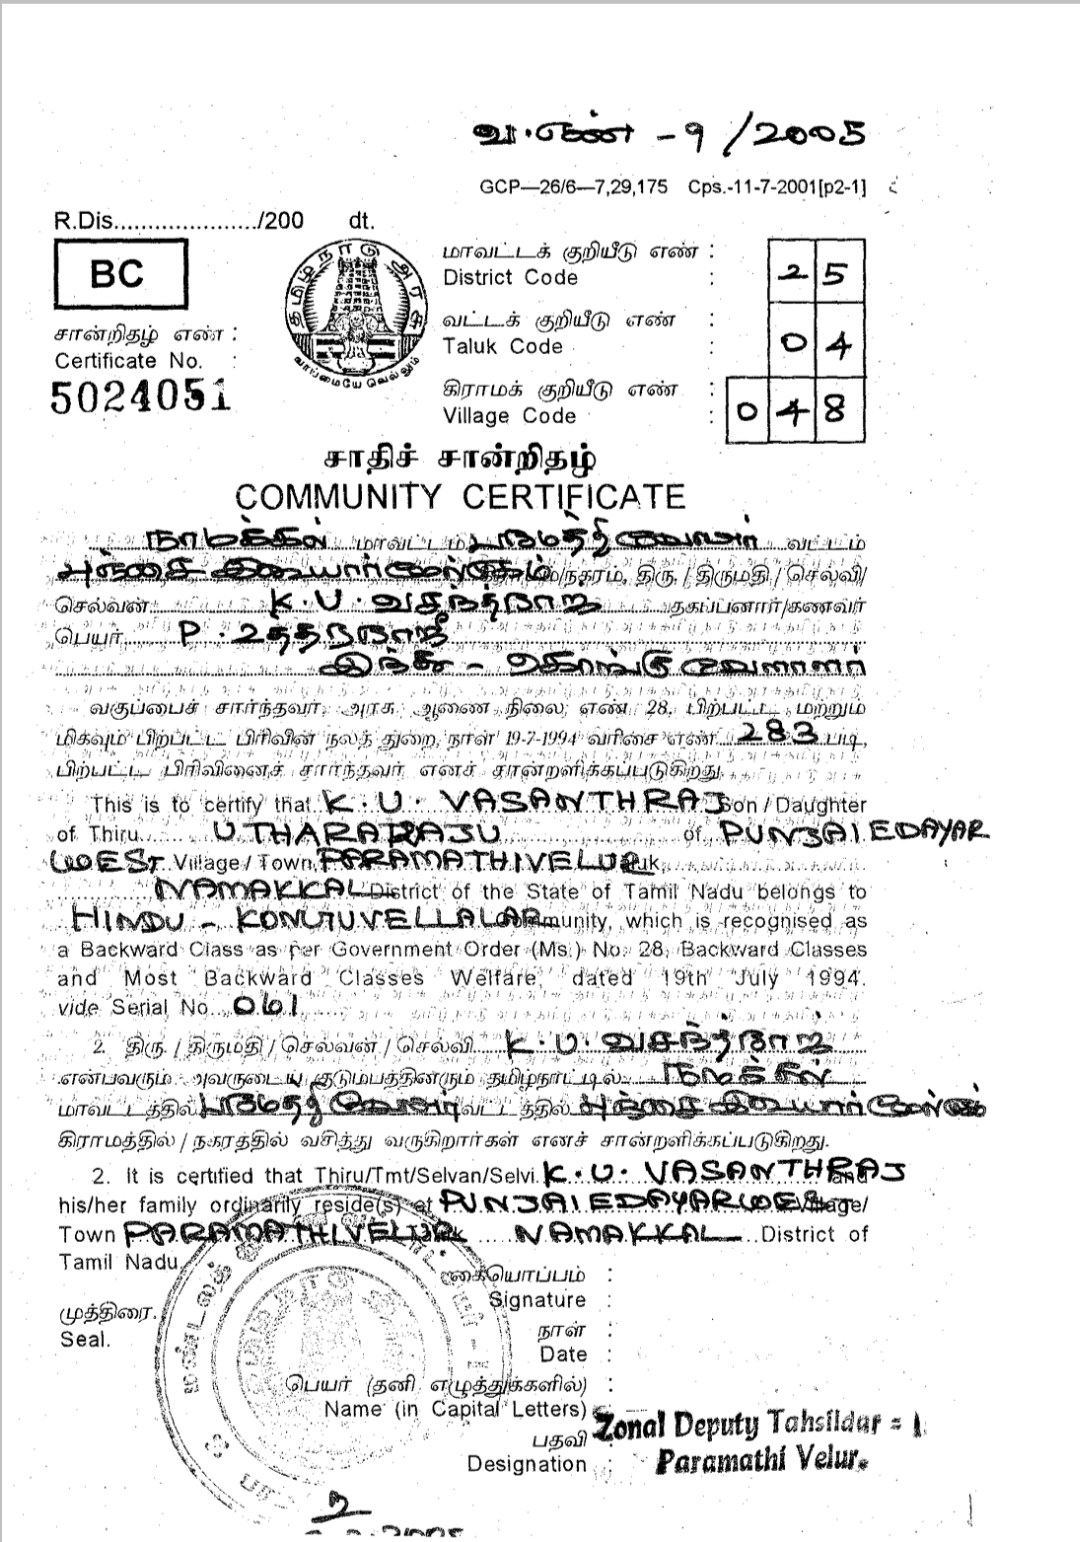 வ.எண் - 9 / 2005
GCP—26/6—7,29,175 Cps.-11-7-2001[p2-1]
R.Dis...................../200 dt.
BC
தமிழ்நாடு அரசு
வாய்மையே வெல்லும்
மாவட்டக் குறியீடு எண் :
District Code : 25
வட்டக் குறியீடு எண் :
Taluk Code : 04
சான்றிதழ் எண் :
Certificate No. :
5024051
கிராமக் குறியீடு எண் :
Village Code : 048
சாதிச் சான்றிதழ்
COMMUNITY CERTIFICATE
நாமக்கல் மாவட்டம் பரமத்தி வேலூர் வட்டம்
நகரம், திரு. / திருமதி / செல்வி/
செல்வன் K.U. வசந்த்ராஜ் தகப்பனார்/கணவர்
பெயர் P. உத்தரராஜீ
இந்து - கொங்கு வேளாளர்
வகுப்பைச் சார்ந்தவர். அரசு ஆணை நிலை எண் 28, பிற்பட்ட மற்றும்
மிகவும் பிற்பட்ட பிரிவின் நலத் துறை, நாள் 19-7-1994 வரிசை எண் 283 படி,
பிற்பட்ட பிரிவினைச் சார்ந்தவர் எனச் சான்றளிக்கப்படுகிறது.
This is to certify that K.U. VASANTHRAJ Son / Daughter
of Thiru UTHARARAJU of PUNJAI EDAYAR
WEST Village / Town, PARAMATHIVELUR
NAMAKKAL District of the State of Tamil Nadu belongs to
HINDU - KONGUVELLALAR Community, which is recognised as
a Backward Class as per Government Order (Ms.) No. 28, Backward Classes
and Most Backward Classes Welfare, dated 19th July 1994.
vide Serial No. 061
2. திரு. / திருமதி / செல்வன் / செல்வி K.U. வசந்த்ராஜ்
என்பவரும் அவருடைய குடும்பத்தினரும் தமிழ்நாட்டில் நாமக்கல்
மாவட்டத்தில் பரமத்தி வேலூர் வட்டத்தில்
கிராமத்தில் / நகரத்தில் வசித்து வருகிறார்கள் எனச் சான்றளிக்கப்படுகிறது.
2. It is certified that Thiru/Tmt/Selvan/Selvi. K.U. VASANTHRAJ and
his/her family ordinarily reside(s) at PUNJAI EDAYAR WEST Village/
Town PARAMATHIVELUR NAMAKKAL District of
Tamil Nadu.
கையொப்பம் :
Signature :
முத்திரை.
Seal.
நாள் :
Date :
பெயர் (தனி எழுத்துக்களில்) :
Name (in Capital Letters) :
பதவி
Designation :
Zonal Deputy Tahsildar = 1
Paramathi Velur.